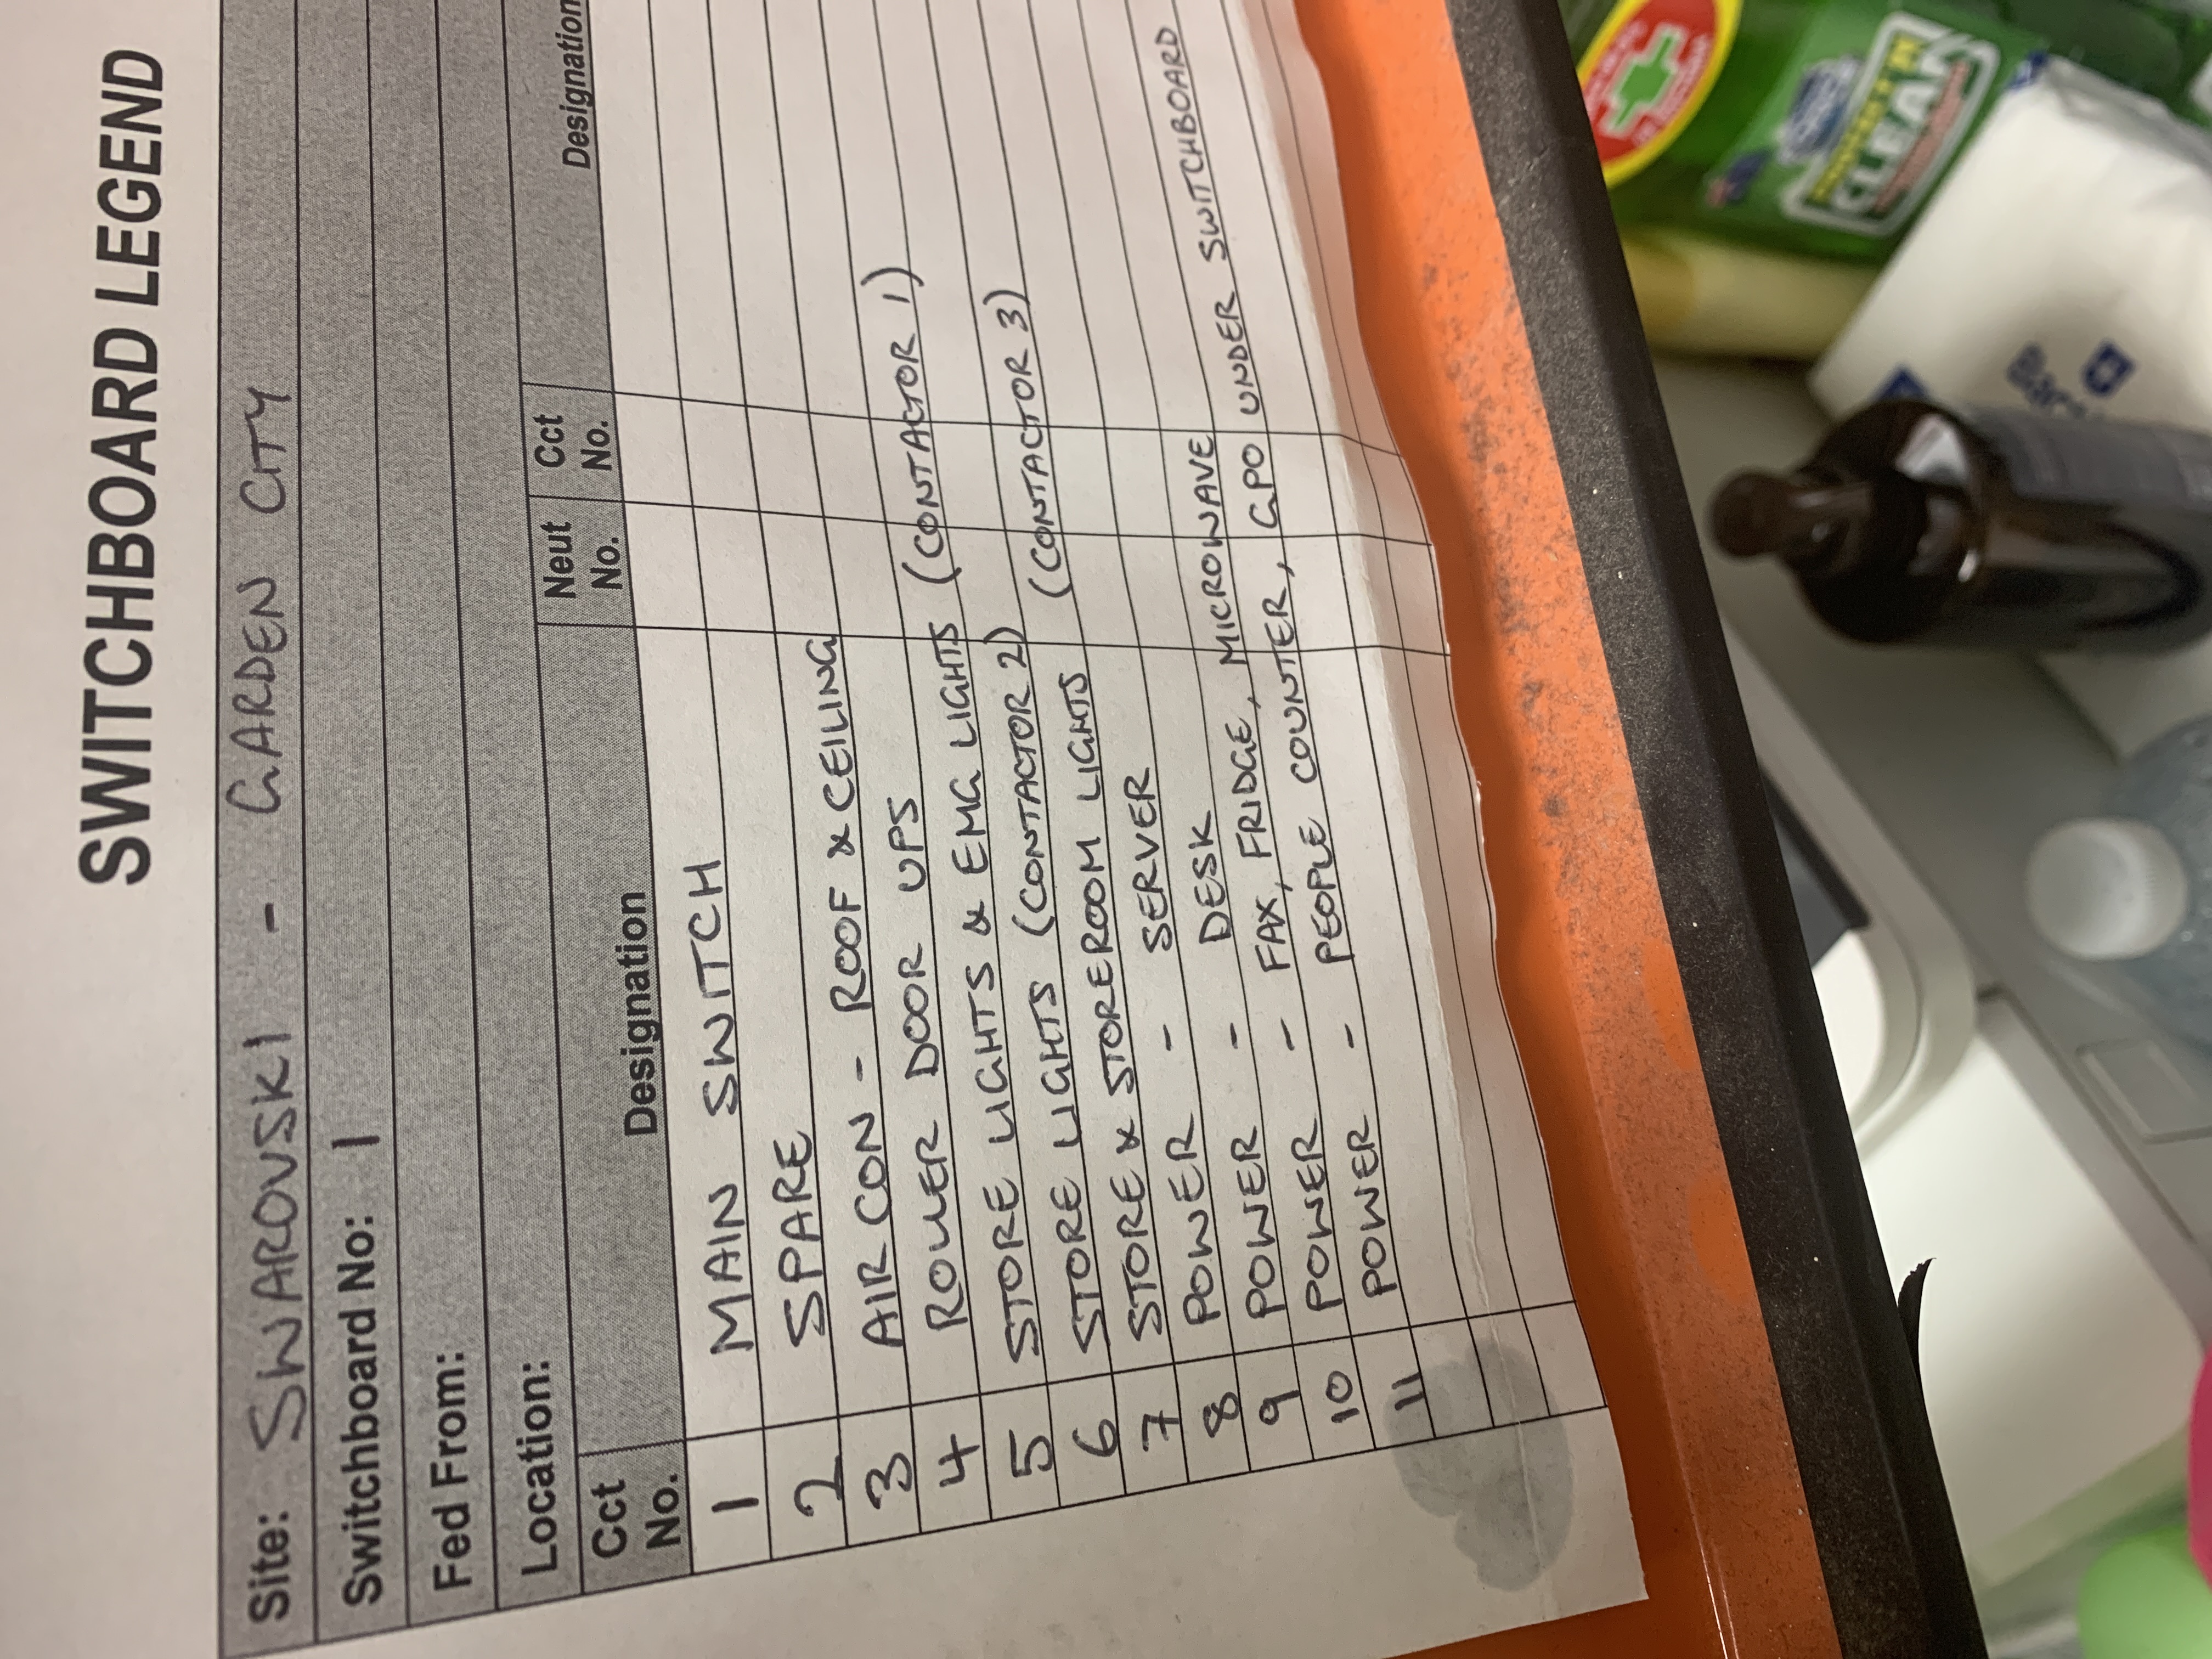 SWITCHBOARD LEGEND
Site: SWAROVSKI - GARDEN CITY
Switchboard No: 1
Fed From:
Location:
Cct No. Designation Neut No. Cct No. Designation
1 MAIN SWITCH
2 SPARE
3 AIR CON - ROOF & CEILING
4 ROLLER DOOR UPS
5 STORE LIGHTS & EMG LIGHTS (CONTACTOR 1)
6 STORE LIGHTS (CONTACTOR 2)
7 STORE & STOREROOM LIGHTS (CONTACTOR 3)
8 POWER - SERVER
9 POWER - DESK
10 POWER - FAX, FRIDGE, MICROWAVE
11 POWER - PEOPLE COUNTER, GPO UNDER SWITCHBOARD
CLEAN